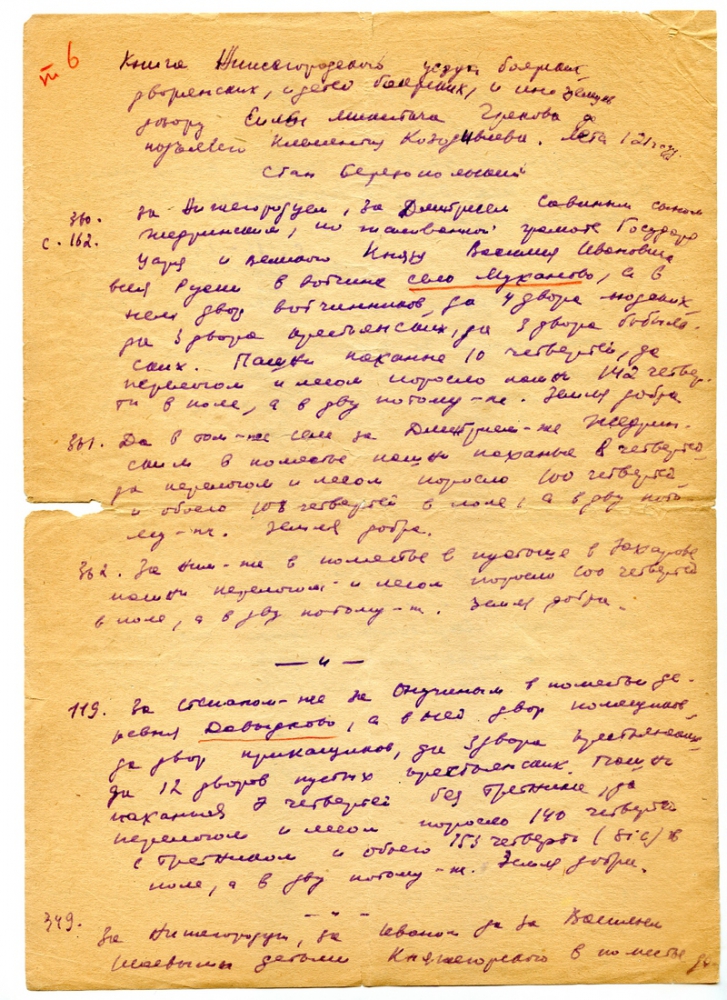 VII 6
Книга Нижегородского уезда боярских
дворянских, и детей боярских, и иноземцев
дозору Силы Микитича Грекова да
подьячего Климентия Козодавлева. Лета 121 году.
Стан Березопольский
360. За Нижегородцем, за Дмитрием Савиным сыном
с. 162. Жедринским, по жалованной грамоте Государя
Царя и великого Князя Василия Ивановича
всея Руси в вотчине село Муханово, а в
нем двор вотчинников, да 4 двора людских
да 3 двора крестьянских, да 3 двора бобыль-
ских. Пашни паханые 10 четвертей, да
перелогом и лесом поросло пашни 142 четвер-
ти в поле, а в дву потому-ж. Земля добра
361. Да в том-же селе за Дмитрием-же Жедрин-
ским в поместье пашни паханые 8 четвертей
да перелогом и лесом поросло 100 четвертей
и обоего 108 четвертей в поле, а в дву пото-
му-ж. Земля добра.
362. За ним-же в поместье в пустоше в Захарове
пашни перелогом и лесом поросло 100 четвертей
в поле, а в дву потому-ж. Земля добра.
— " —
119. За Степаном-же за Онучиным в поместьи де-
ревня Давыдково, а в ней двор помещиков,
да двор прикащиков, да 3 двора крестьянских
да 12 дворов пустых крестьянских. Пашни
паханыя 7 четвертей без третника, да
перелогом и лесом поросло 140 четвертей
с третником и обоего 153 четверти (sic) в
поле, а в дву потому-ж. Земля добра.
- " -
349. За Нижегородцы, за Иваном да за Василием
детьми Княжегорского в поместье